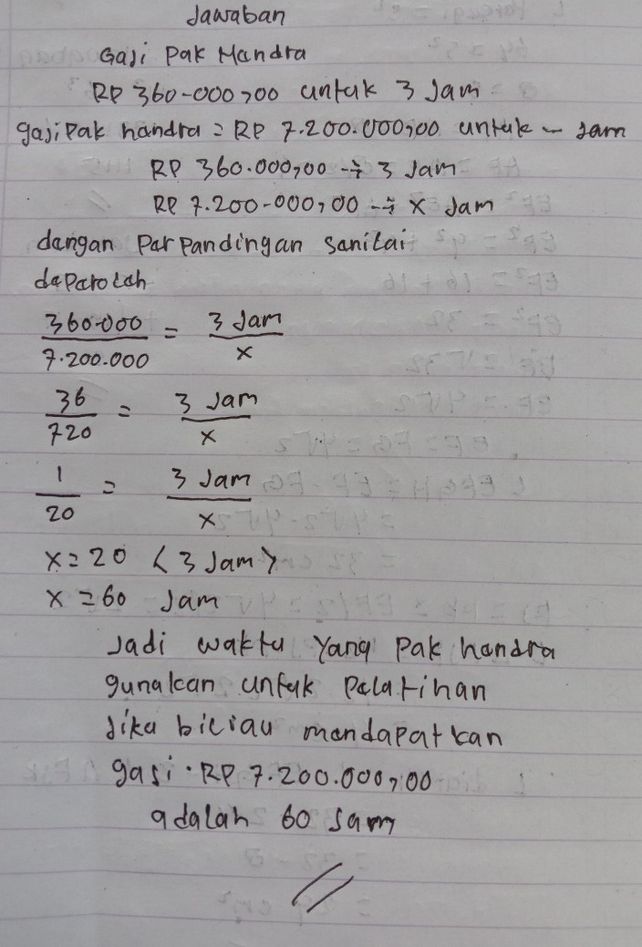 Jawaban
Gaji Pak Mandra
RP 360.000,00 untuk 3 Jam
gaji Pak handra = RP 7.200.000,00 untuk - Jam
RP 360.000,00 → 3 Jam
RP 7.200.000,00 → x Jam
dangan Parpandingan Sanilai
daParolah
360.000 / 7.200.000 = 3 Jam / x
36 / 720 = 3 Jam / x
1 / 20 = 3 Jam / x
x = 20 (3 Jam)
x = 60 Jam
Jadi waktu Yang Pak handra
gunakan untuk Pelatihan
Jika biliau mandapatkan
gaji RP 7.200.000,00
adalah 60 Jam